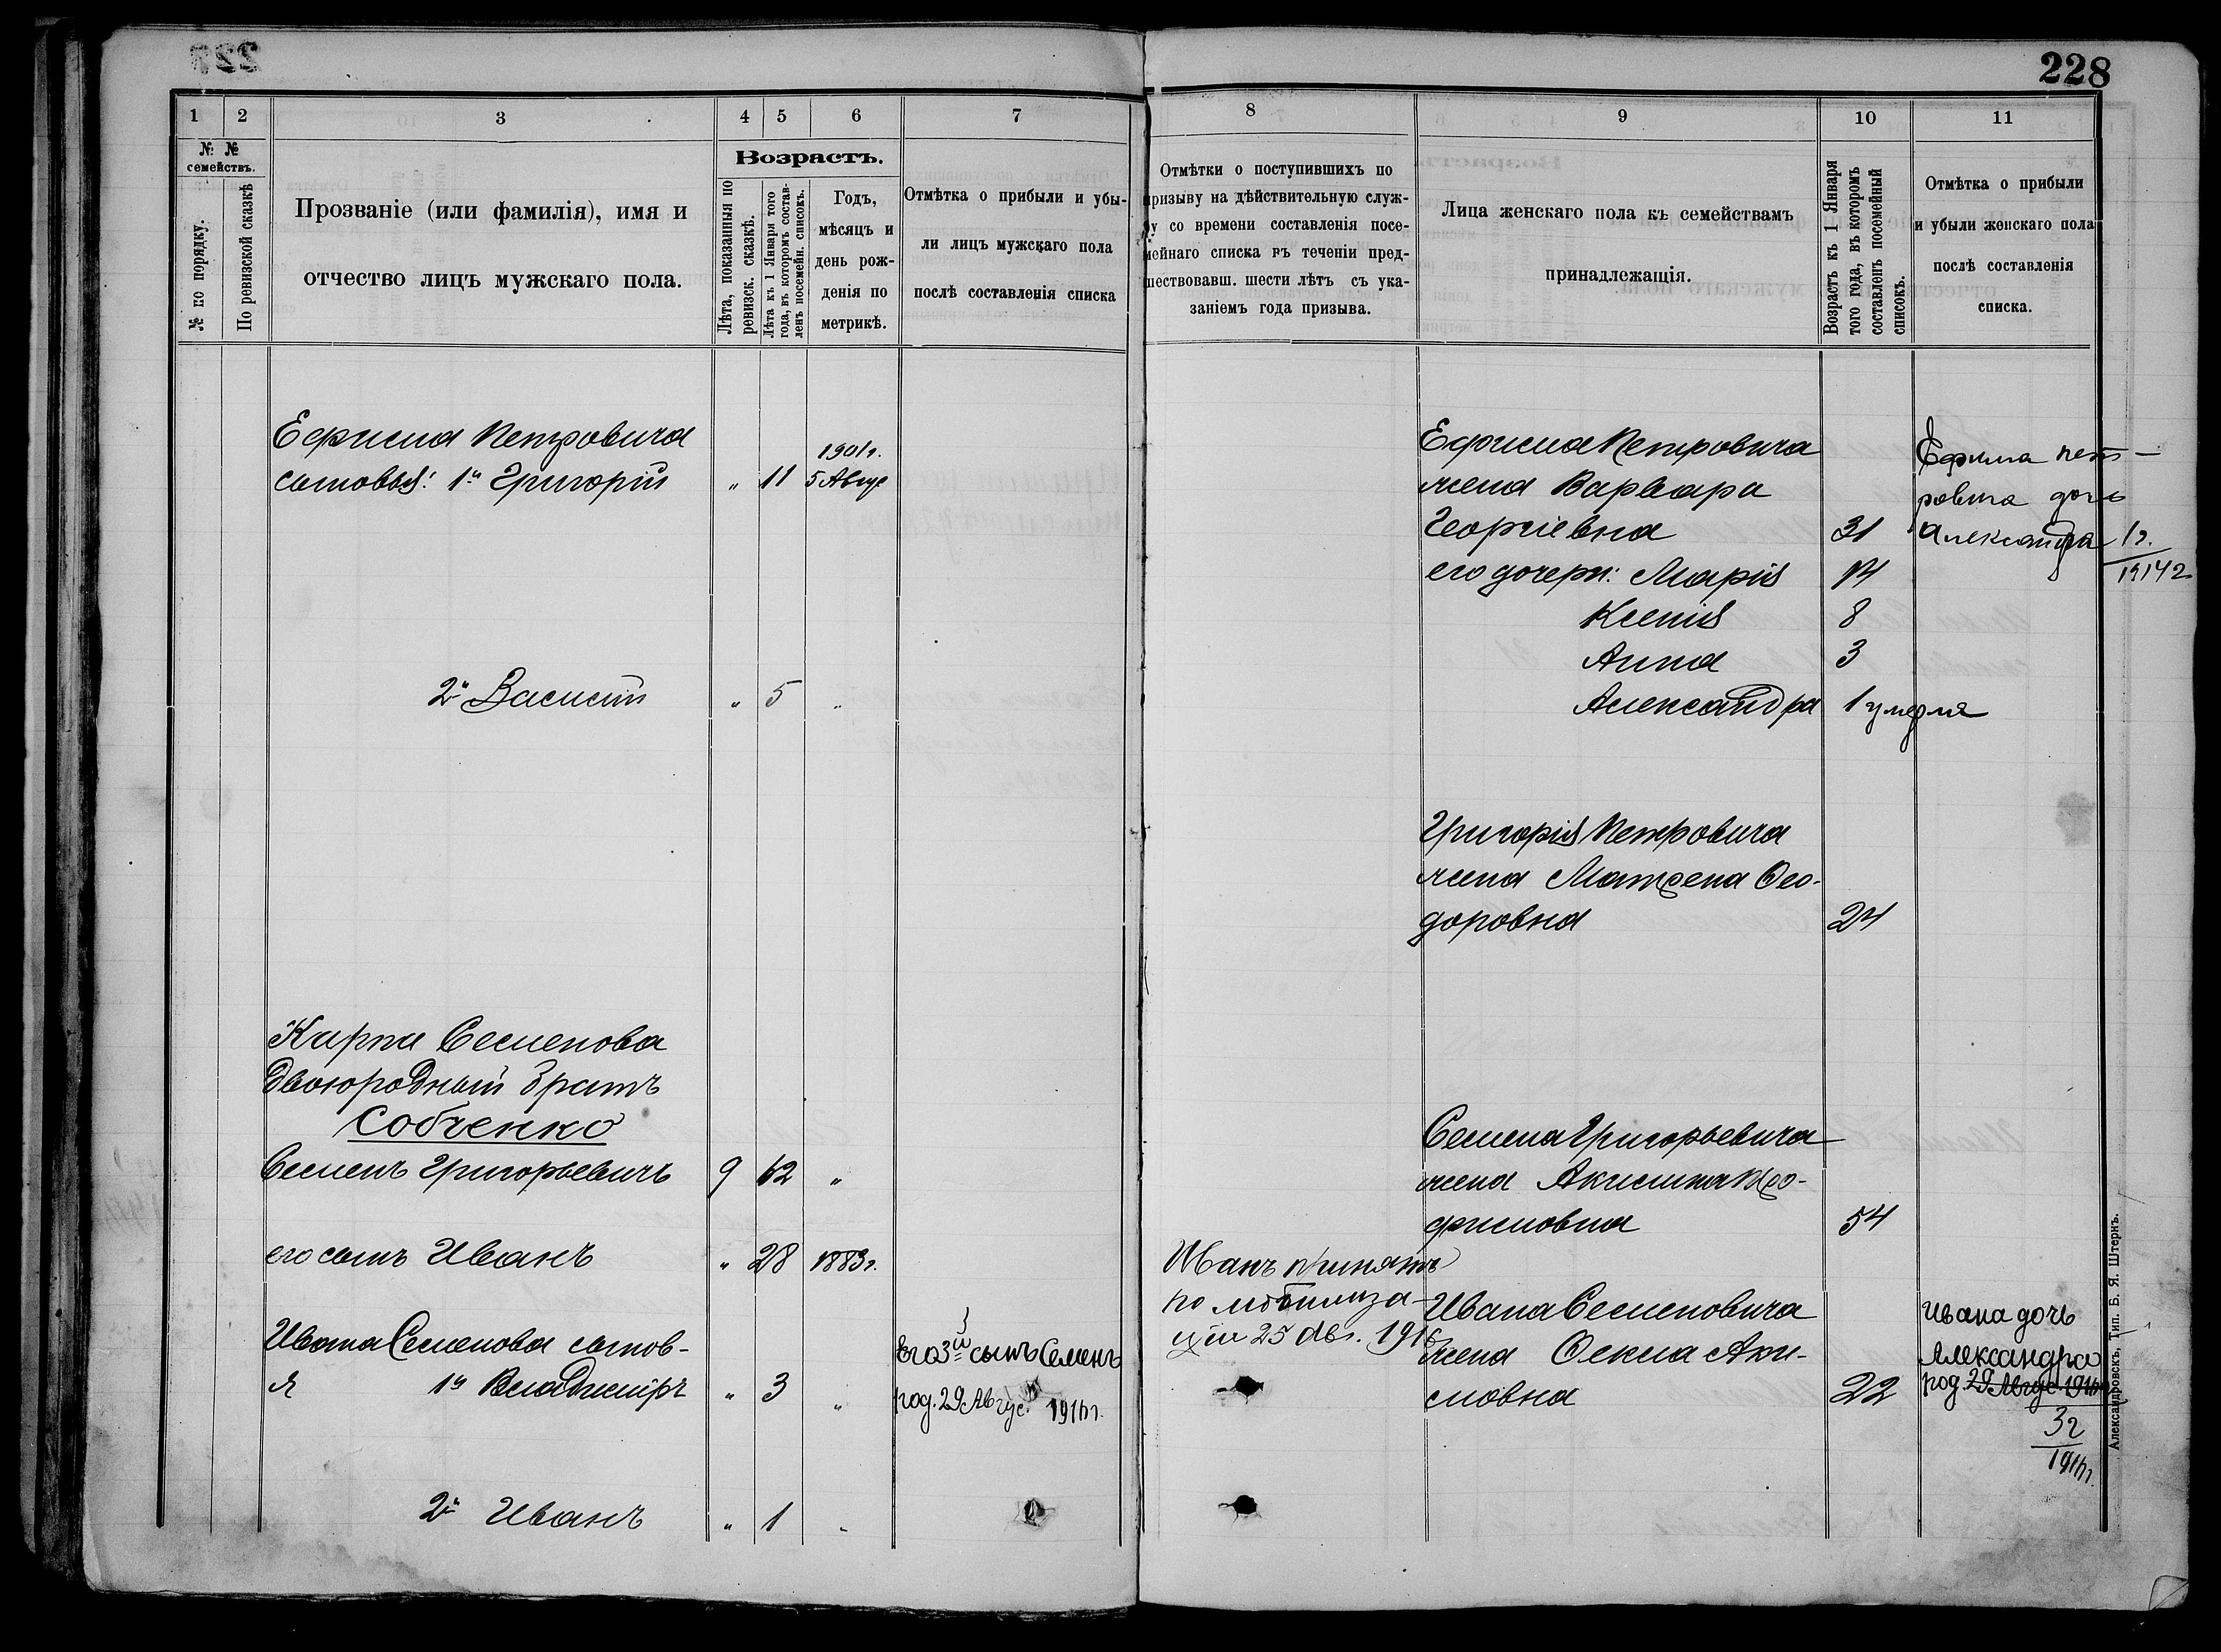 228
1 2 3 4 5 6 7
№ № семействъ.
№ по порядку.
По ревизской сказкѣ
Прозваніе (или фамилія), имя и
отчество лицъ мужскаго пола.
Возрастъ.
Лѣта, показанныя по
ревизск. сказкѣ.
Лѣта къ 1 Января того
года, въ которомъ состав-
ленъ посемейн. списокъ.
Годъ,
мѣсяцъ и
день рож-
денія по
метрикѣ.
Отмѣтка о прибыли и убы-
ли лицъ мужскаго пола
послѣ составленія списка
Ефима Петровича
1901 г.
сыновья: 1й Григорій " 11 5 Авгус
2й Василій " 5 "
Карпа Семенова
Двоюродный братъ
Собченко
Семенъ Григорьевичъ 9 62 "
его сынъ Иванъ " 28 1883 г.
Ивана Семенова сынов-
я 1й Владиміръ " 3 "
Его 3й сынъ Семенъ
род. 29 Авгус. 191 г.
2й Иванъ " 1 "
8 9 10 11
Отмѣтки о поступившихъ по
призыву на дѣйствительную служ-
бу со времени составленія посе-
мейнаго списка въ теченіи пред-
шествовавш. шести лѣтъ съ ука-
заніемъ года призыва.
Лица женскаго пола къ семействамъ
принадлежащія.
Возрастъ къ 1 Января
того года, въ которомъ
составленъ посемейный
списокъ.
Отмѣтка о прибыли
и убыли женскаго пола
послѣ составленія
списка.
Ефима Петровича
жена Варвара
Георгіевна 31
его дочери: Марія 14
Ксенія 8
Анна 3
Александра 1 умерла
Ефима пет-
ровича дочь
Александра 1 г.
1914 г
Григорія Петровича
жена Матрена Ѳео-
доровна 24
Семена Григорьевича
жена Акилина
фимовна 54
Иванъ принятъ
по мобилиза-
ціи 25 Авг. 1916
Ивана Семеновича
жена Оекла Аки-
мовна 22
Ивана дочь
Александра
род. 29 Авгус. 191
3 г
191 г.
Александровскъ, Тип. Б. Я. Штернъ.